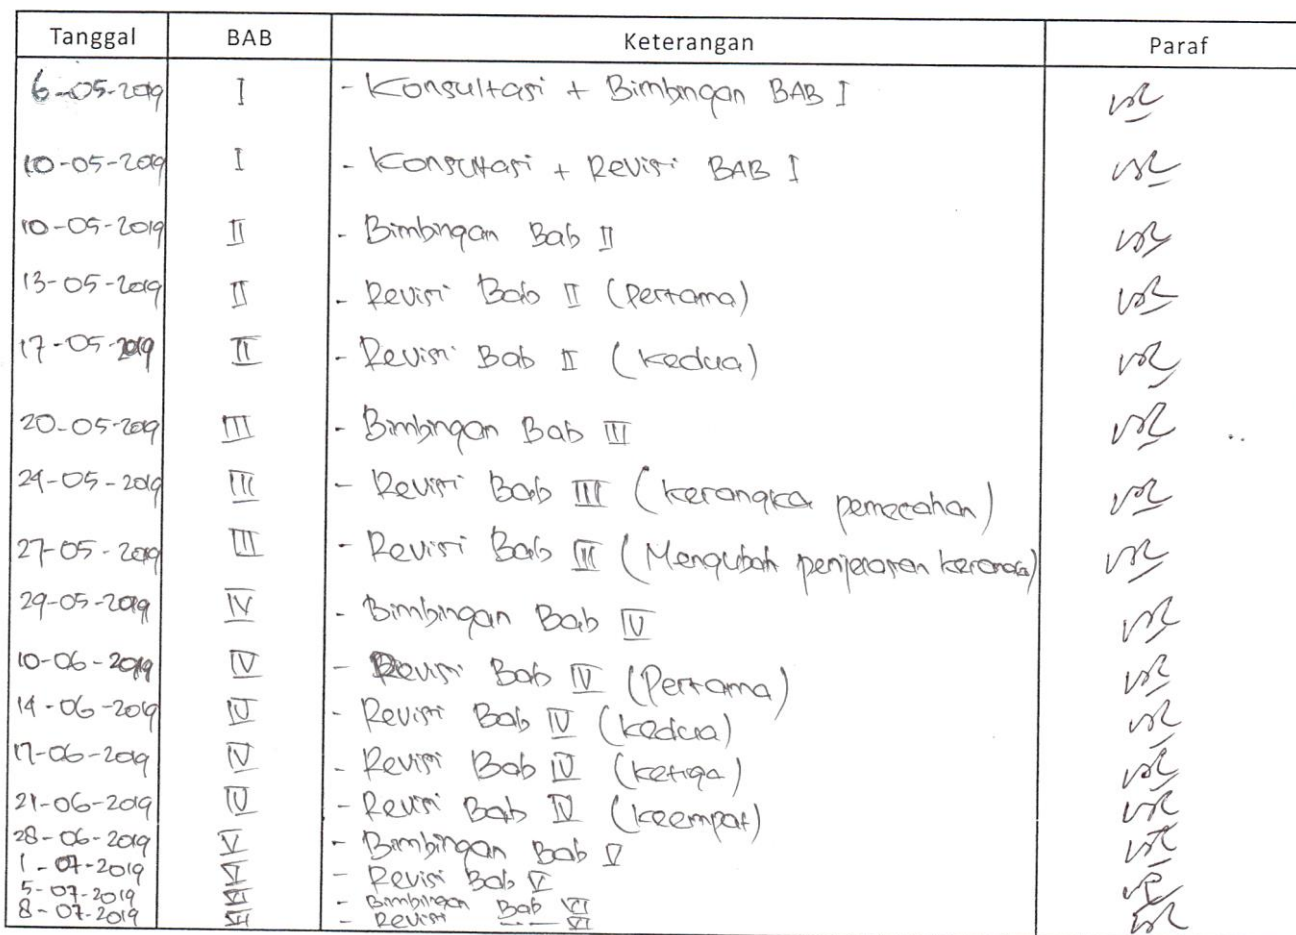 Tanggal BAB Keterangan Paraf
6-05-2019 I - Konsultasi + Bimbingan BAB I
10-05-2019 I - Konsultasi + Revisi BAB I
10-05-2019 II - Bimbingan Bab II
13-05-2019 II - Revisi Bab II (Pertama)
17-05-2019 II - Revisi Bab II (kedua)
20-05-2019 III - Bimbingan Bab III
24-05-2019 III - Revisi Bab III (kerangka pemecahan)
27-05-2019 III - Revisi Bab III (Mengubah penjelasan kerangka)
29-05-2019 IV - Bimbingan Bab IV
10-06-2019 IV - Revisi Bab IV (Pertama)
14-06-2019 IV - Revisi Bab IV (kedua)
17-06-2019 IV - Revisi Bab IV (ketiga)
21-06-2019 IV - Revisi Bab IV (keempat)
28-06-2019 V - Bimbingan Bab V
1-07-2019 V - Revisi Bab V
5-07-2019 VI - Bimbingan Bab VI
8-07-2019 VI - Revisi -- VI